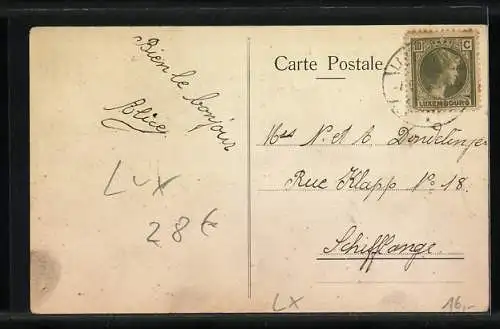 Bien le bonjour
Alice
Lux
28 €
Carte Postale
10 C
LUXEMBOURG
Mss N. et A. Dondelinger
Rue Klapp No 18.
Schifflange.
LX
16,-